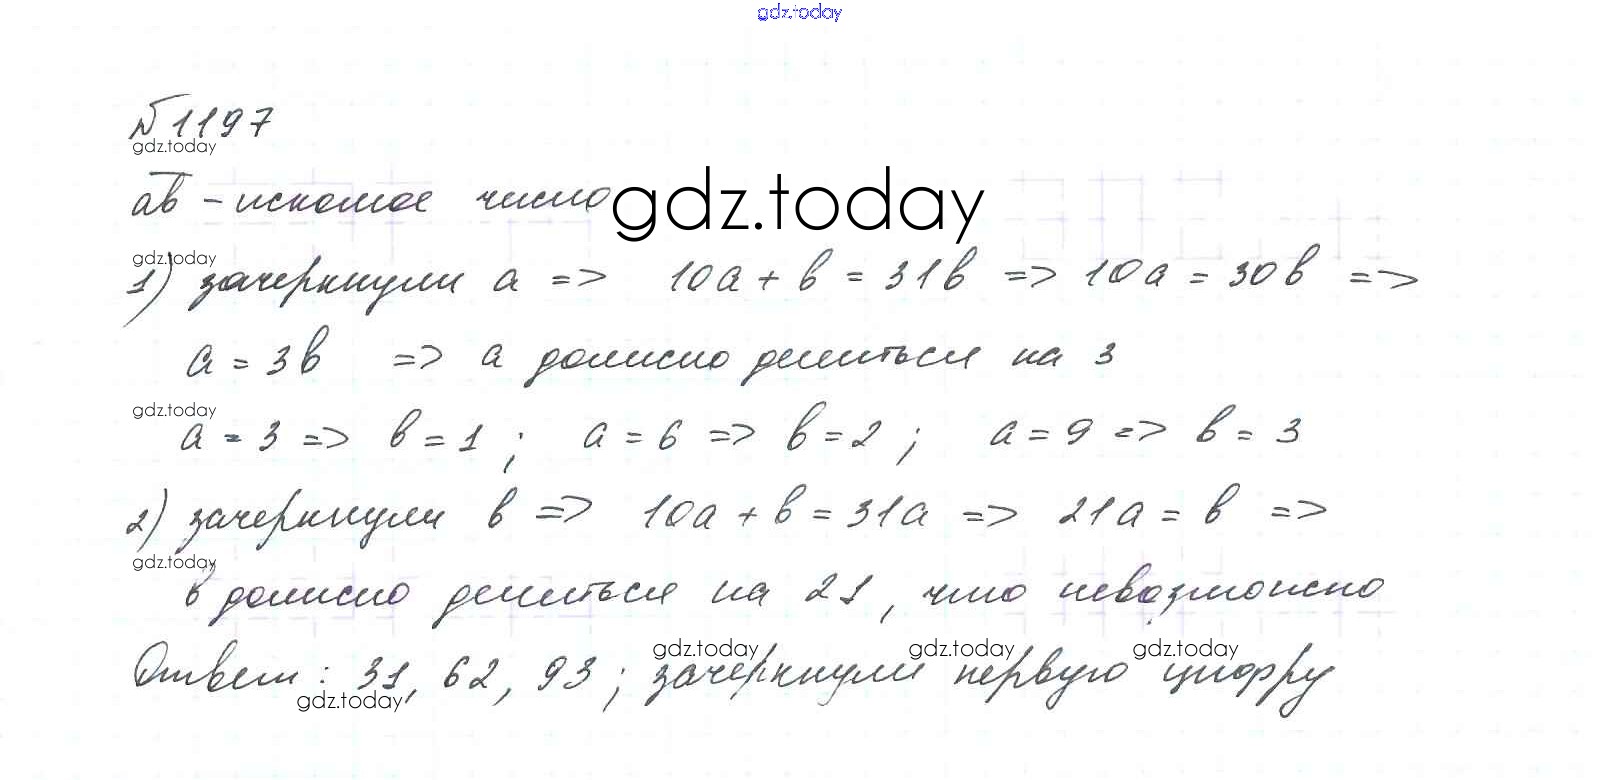 gdz.today
№ 1197
gdz.today
ав – искомое число
gdz.today
gdz.today
1) зачеркнули а => 10а + в = 31в => 10а = 30в =>
а = 3в => а должно делиться на 3
gdz.today
а = 3 => в = 1 ; а = 6 => в = 2 ; а = 9 => в = 3
2) зачеркнули в => 10а + в = 31а => 21а = в =>
gdz.today
в должно делиться на 21, что невозможно
gdz.today gdz.today gdz.today
Ответ: 31, 62, 93; зачеркнули первую цифру
gdz.today